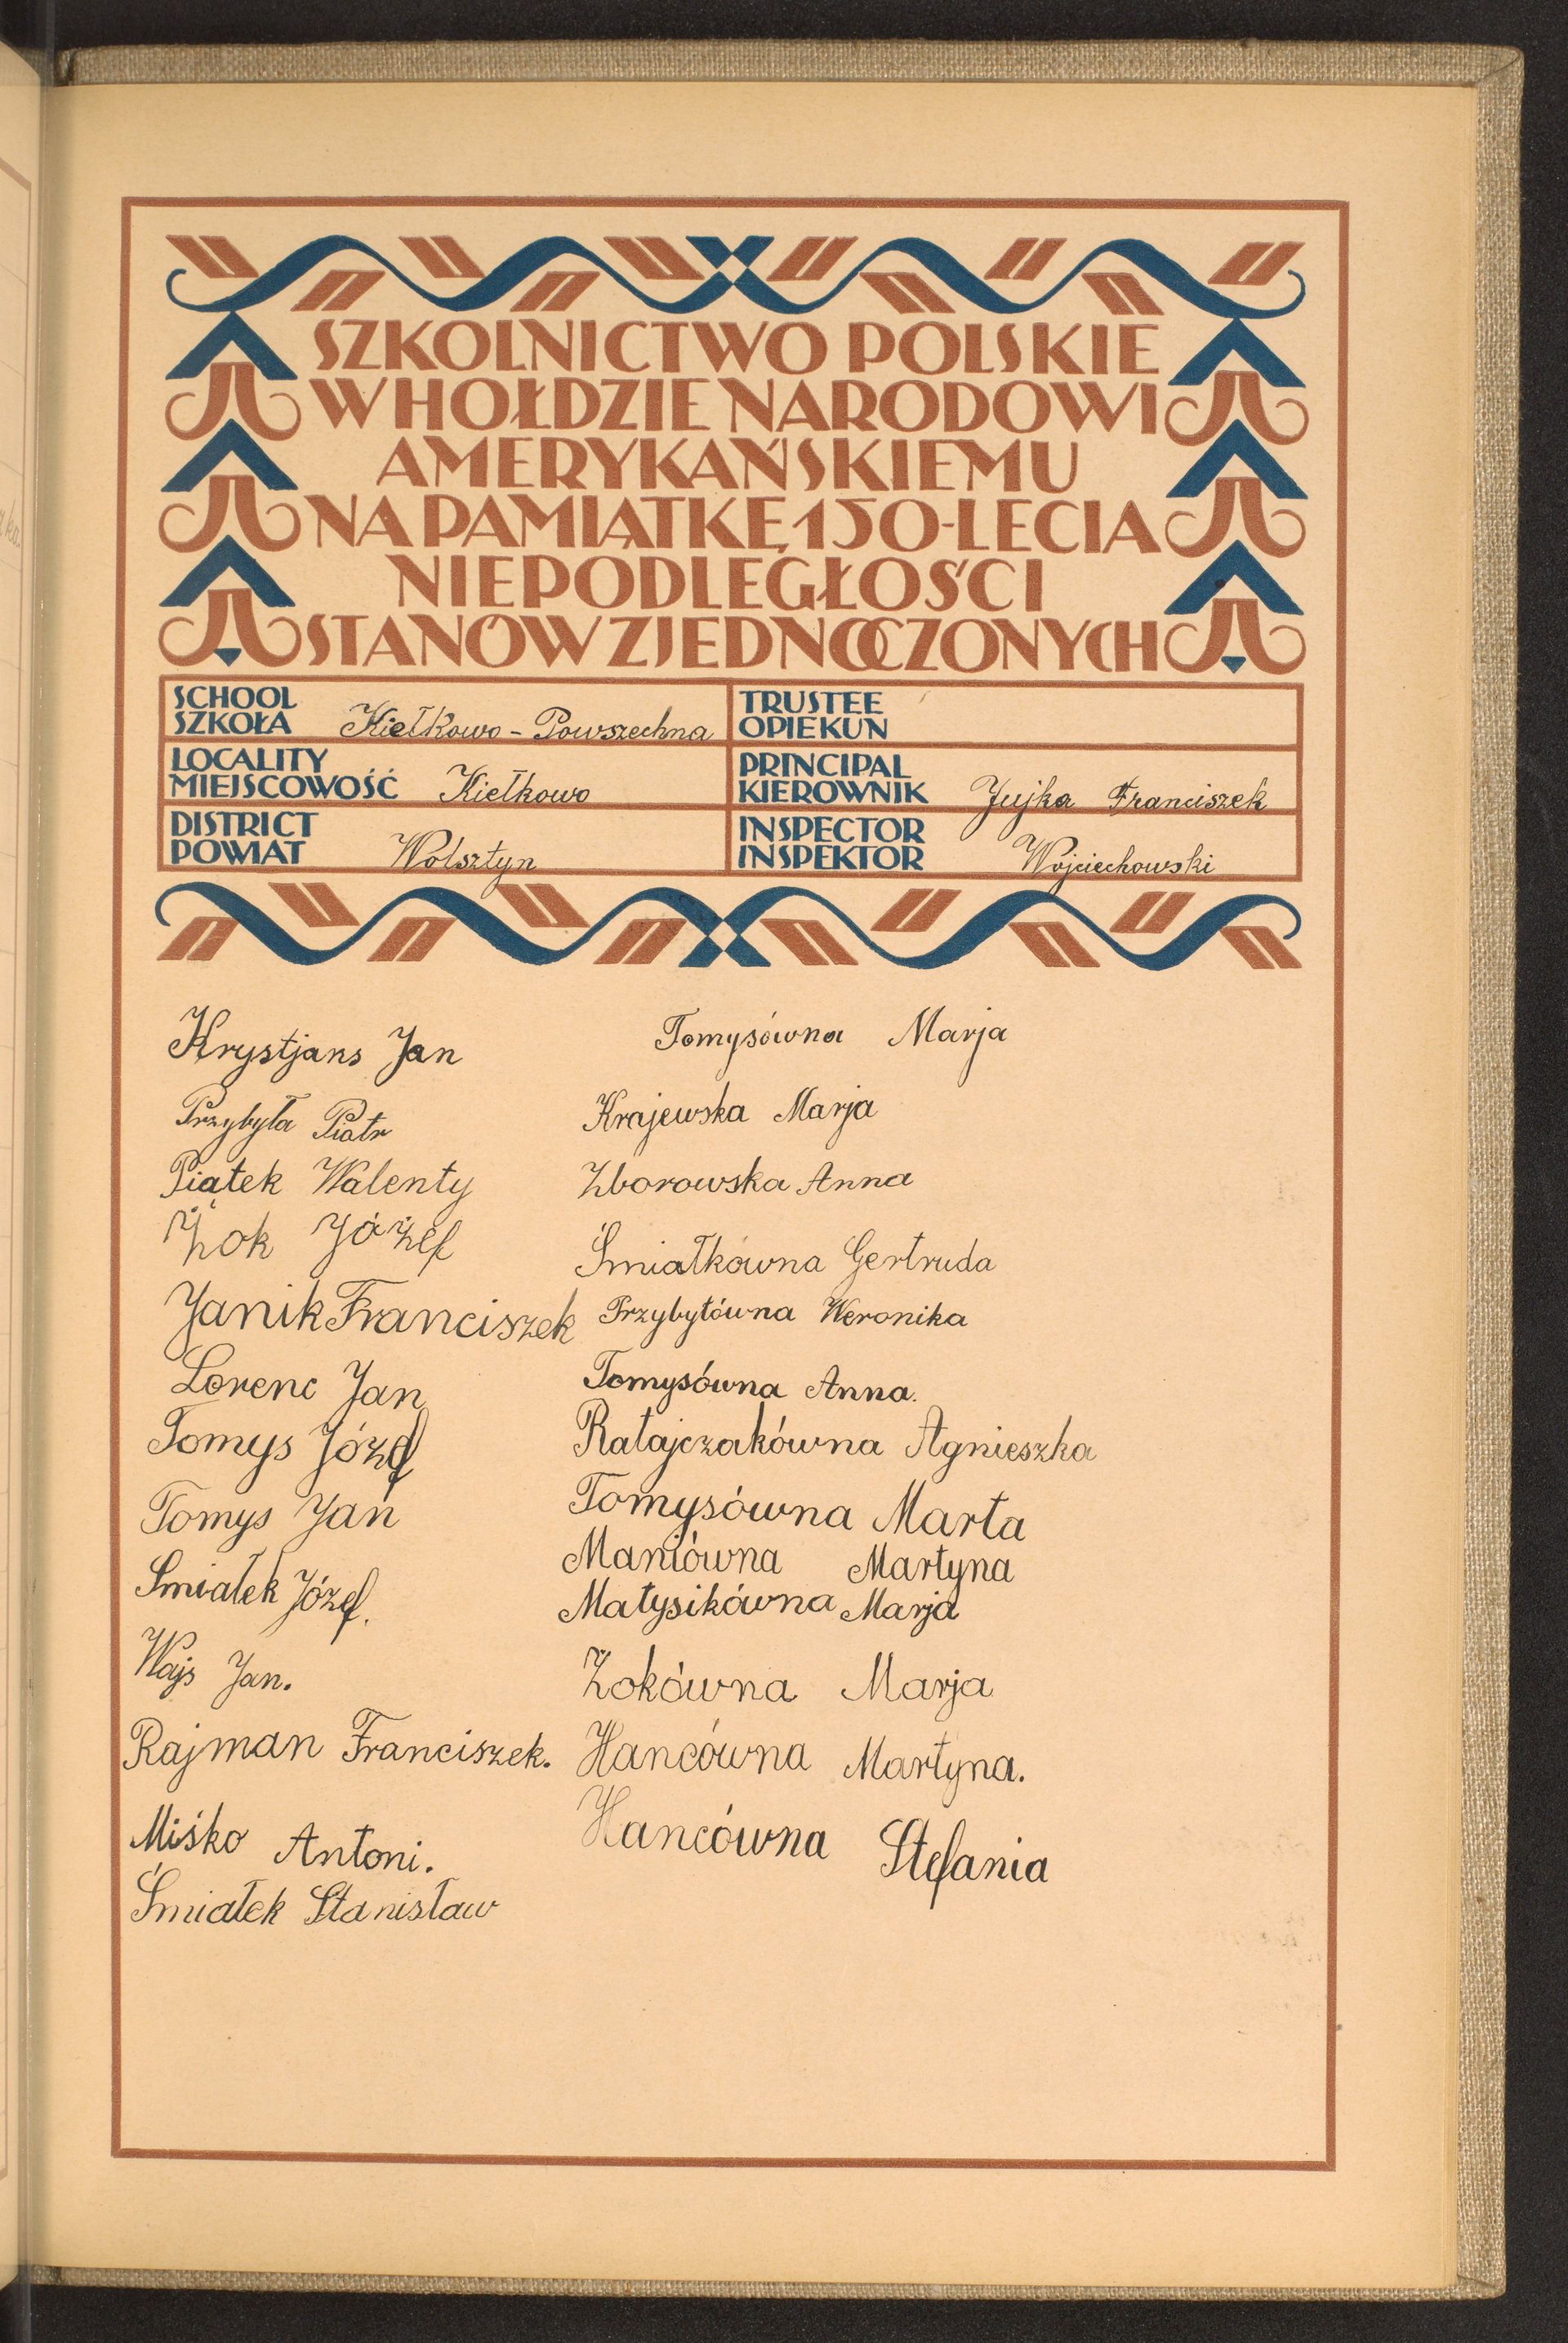 SZKOLNICTWO POLSKIE
W HOŁDZIE NARODOWI
AMERYKAŃSKIEMU
NA PAMIĄTKĘ 150-LECIA
NIEPODLEGŁOŚCI
STANÓW ZJEDNOCZONYCH
SCHOOL
SZKOŁA Kiełkowo - Powszechna
LOCALITY
MIEJSCOWOŚĆ Kiełkowo
DISTRICT
POWIAT Wolsztyn
TRUSTEE
OPIEKUN
PRINCIPAL
KIEROWNIK Jujka Franciszek
INSPECTOR
INSPEKTOR Wojciechowski
Krystjans Jan
Przybyła Piotr
Piątek Walenty
Żok Józef
Janik Franciszek
Lorenc Jan
Tomys Józef
Tomys Jan
Śmiałek Józef.
Wajs Jan.
Rajman Franciszek.
Miśko Antoni.
Śmiałek Stanisław
Tomysówna Marja
Krajewska Marja
Zborowska Anna
Śmiałkówna Gertruda
Przybyłówna Weronika
Tomysówna Anna.
Ratajczakówna Agnieszka
Tomysówna Marta
Maniówna Martyna
Matysikówna Marja
Żokówna Marja
Hancówna Martyna.
Hancówna Stefania